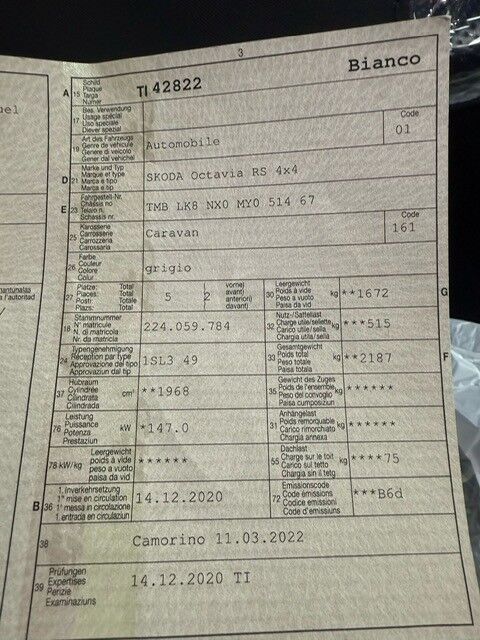 3
Bianco
A 15 Schild Plaque Targa Numer TI 42822
17 Bes. Verwendung Usage spécial Uso speciale Diever spezial
Code
01
19 Art des Fahrzeugs Genre de véhicule Genere di veicolo Gener dal vehichel Automobile
D 21 Marke und Typ Marque et type Marca e tipo Marca e tip SKODA Octavia RS 4x4
E 23 Fahrgestell-Nr. Châssis no Telaio n. Schassis nr. TMB LK8 NX0 MY0 514 67
25 Karosserie Carrosserie Carrozzeria Carossaria Caravan
Code
161
26 Farbe Couleur Colore Colur grigio
27 Plätze: Total Places: Total Posti: Totale Plazs: Total 5 2 vorne) avant) anteriori) davant)
30 Leergewicht Poids à vide Peso a vuoto Paisa da vid kg **1672 G
18 Stammnummer N° matricule N. di matricola Nr. da matricla 224.059.784
32 Nutz-/Sattellast Charge utile/sellette Carico utile/sella Chargia utila/sella kg ***515
24 Typengenehmigung Réception par type Approvazione del tipo Approvaziun dal tip 1SL3 49
33 Gesamtgewicht Poids total Peso totale Paisa totala kg **2187 F
37 Hubraum Cylindrée Cilindrata Cilindrada cm³ **1968
35 Gewicht des Zuges Poids de l'ensemble Peso del convoglio Paisa cumposiziun kg ******
76 Leistung Puissance Potenza Prestaziun kW *147.0
31 Anhängelast Poids remorquable Carico rimorchiato Chargia annexa kg ******
78 kW/kg Leergewicht poids à vide peso a vuoto paisa da vid ******
55 Dachlast Charge sur le toit Carico sul tetto Chargia sin il tetg kg ****75
B 36 1. Inverkehrsetzung 1re mise en circulation 1a messa in circolazione 1. entrada en circulaziun 14.12.2020
72 Emissionscode Code émissions Codice emissioni Code d'emissiuns ***B6d
38 Camorino 11.03.2022
39 Prüfungen Expertises Perizie Examinaziuns 14.12.2020 TI